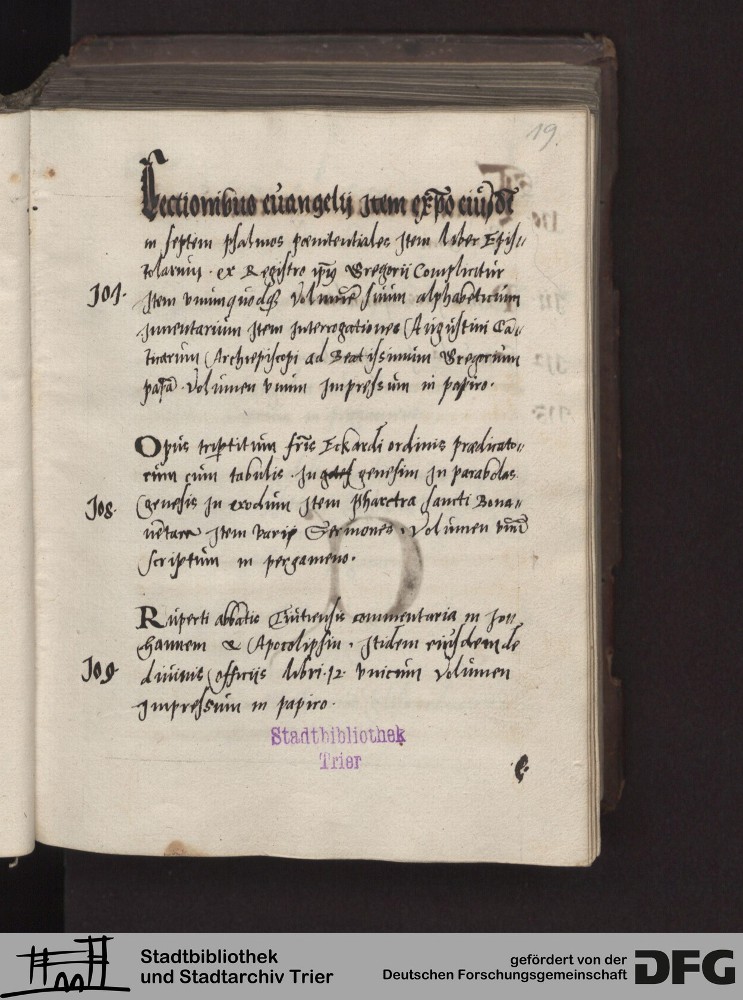 19.
Lectionibus euangelij Item expo eiusde
in septem psalmos pœnitentiales Item liber Epis-
tolarum. ex Registro ipius Gregorii Complicitur
Item vnumquodque Volumen suum alphabeticum
Inuentarium Item Interrogationes Augustini Can-
tuarum Archiepiscopi ad Beatissimum Gregorium
papā. Volumen vnum Impressum in papiro.
Opus tripertitum fris Eckardi ordinis prædicato-
rum cum tabulis. In genesim In parabolas
108. genesis In exodum Item Pharetra sancti Bona-
uenture Item varie Sermones. Volumen vnū
scriptum in pergameno.
Ruperti abbatis Tuitiensis commentaria in Jon-
hannem & Apocalipsin. Itidem eiusdem de
109 diuinis officijs libri 12. vnicum volumen
Impressum in papiro.
Stadtbibliothek
Trier
Stadtbibliothek
und Stadtarchiv Trier
gefördert von der
Deutschen Forschungsgemeinschaft
DFG